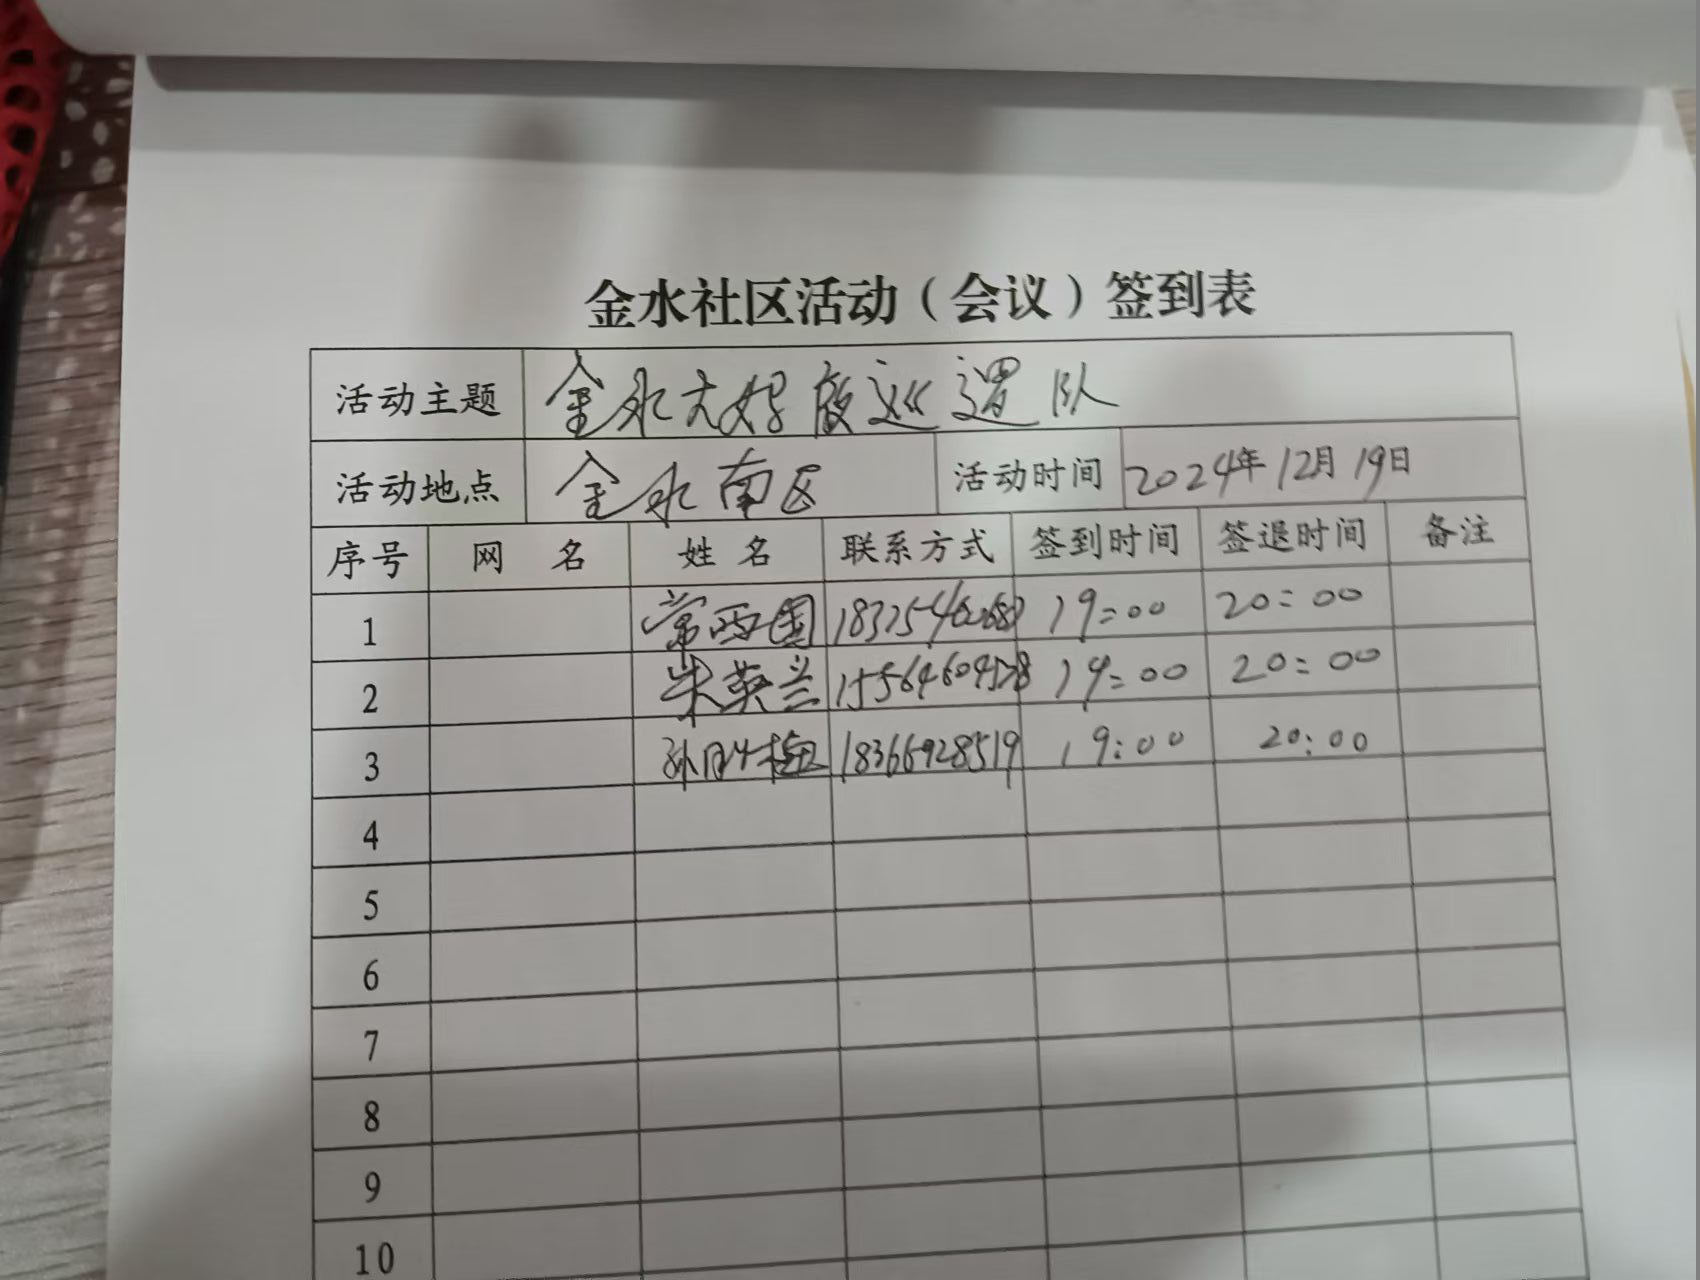 金水社区活动（会议）签到表
活动主题 金水大妈夜巡逻队
活动地点 金水南区 活动时间 2024年12月19日
序号 网 名 姓 名 联系方式 签到时间 签退时间 备注
1 19:00 20:00
2 朱英兰 15564604578 19:00 20:00
3 18366928519 19:00 20:00
4
5
6
7
8
9
10